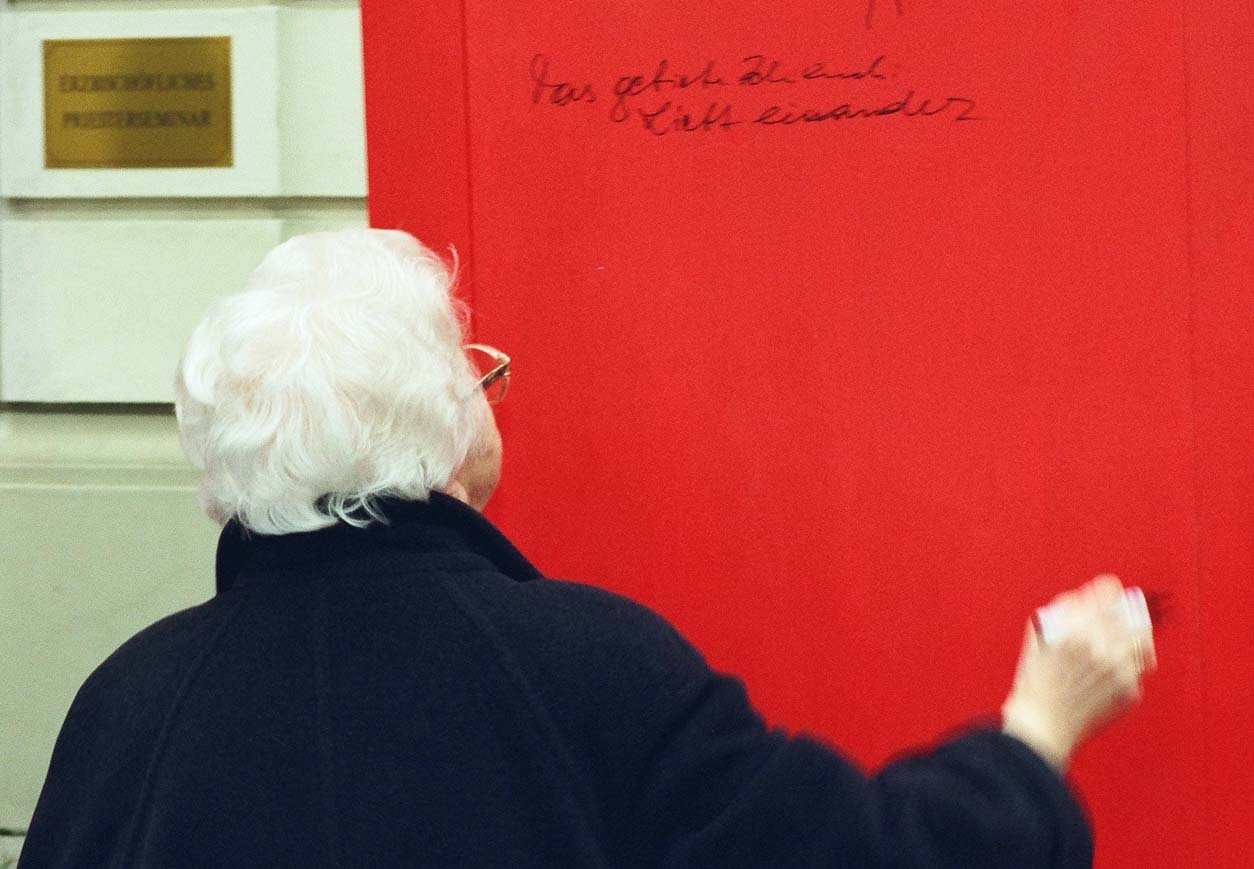 ERZBISCHÖFLICHES
PRIESTERSEMINAR
Das gebiete Ich euch:
Liebt einander